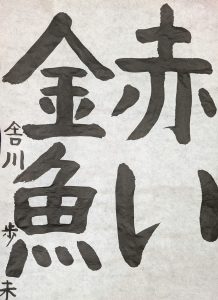 赤い
金魚
舎川 歩未